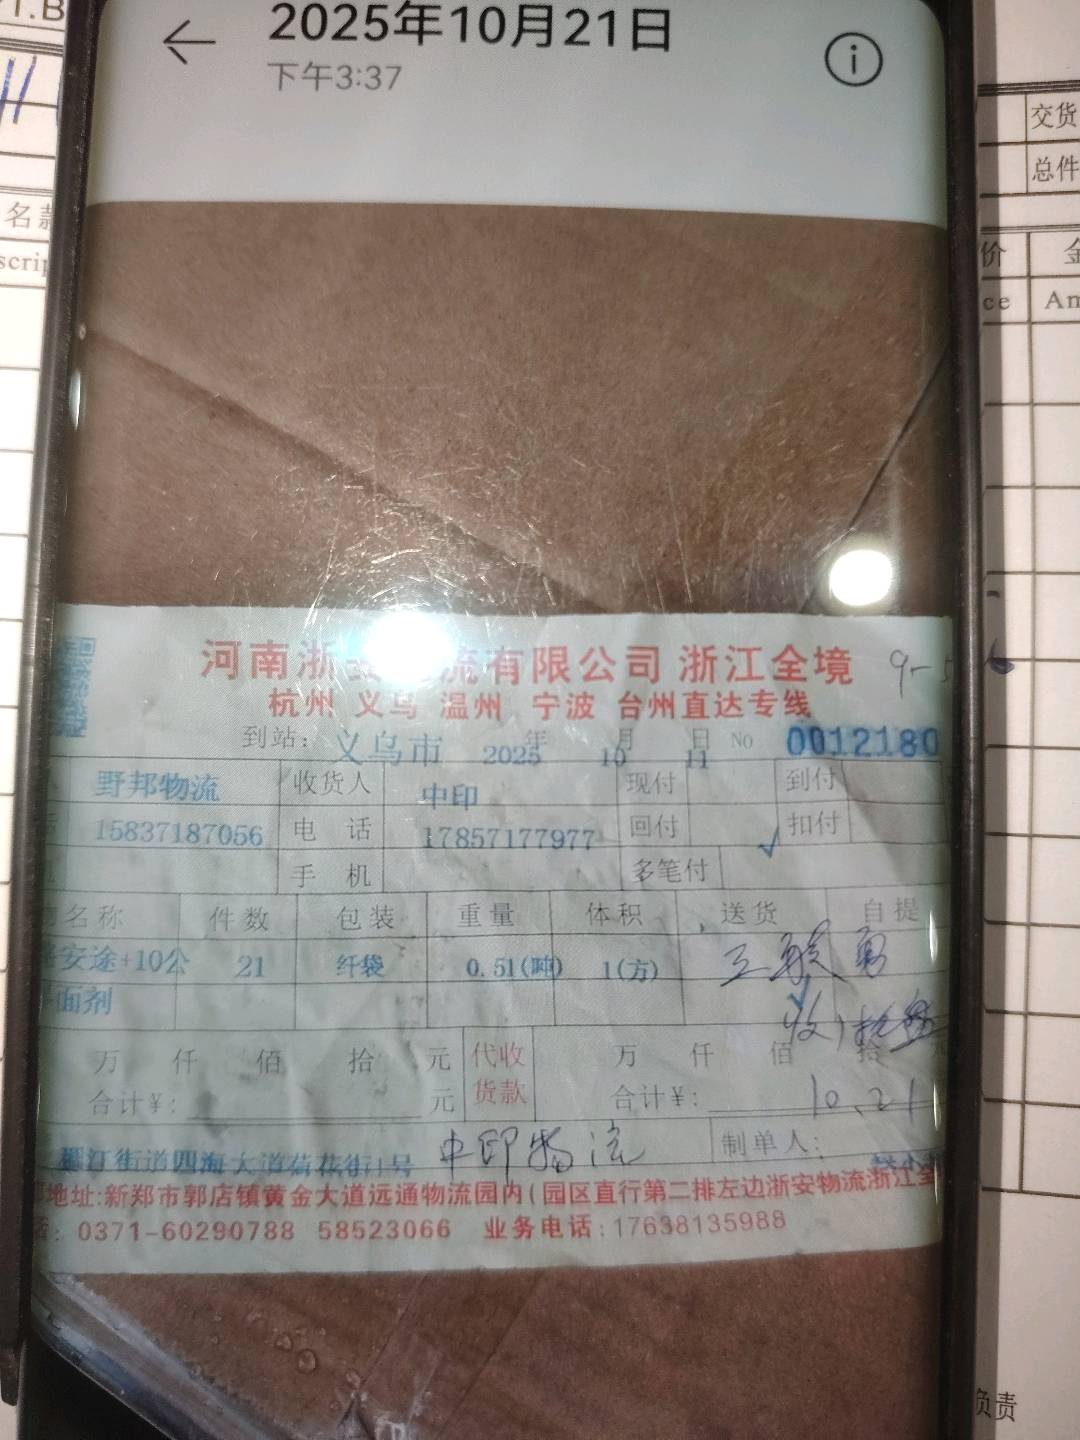 2025年10月21日
下午3:37
交货
总件
名款
scrip
价
金
ce
Am
河南浙 流有限公司 浙江全境
9-5
杭州 义乌 温州 宁波 台州直达专线
到站: 义乌市 2025年10月11日 No 0012180
野邦物流 收货人 中印 现付 到付
15837187056 电 话 17857177977 回付 ✓ 扣付
手 机 多笔付
名称 件数 包装 重量 体积 送货 自提
安途+10公 21 纤袋 0.51(吨) 1(方)
面剂
收
万 仟 佰 拾 元 代收货款 万 仟 佰 拾 元
合计¥: 元 合计¥: 10.21
江街道四海大道荷花街1号 中印物流 制单人:
地址:新郑市郭店镇黄金大道远通物流园内(园区直行第二排左边浙安物流浙江全
: 0371-60290788 58523066 业务电话:17638135988
负责